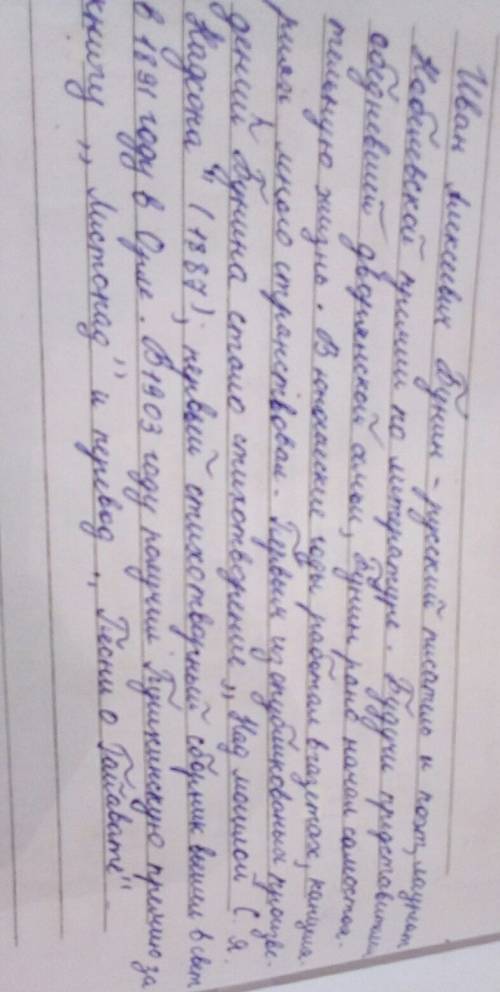 Иван Алексеевич Бунин - русский писатель и поэт, лауреат
Нобелевской премии по литературе. Будучи представителем
обедневшей дворянской семьи, Бунин рано начал самостоя-
тельную жизнь. В юношеские годы работал в газетах, канцеля-
риях, много странствовал. Первым из опубликованных произве-
дений Бунина стало стихотворение „Над могилой С.Я.
Надсона" (1887); первый стихотворный сборник вышел в свет
в 1891 году в Орле. В 1903 году получил Пушкинскую премию за
книгу „Листопад" и перевод „Песни о Гайавате" -